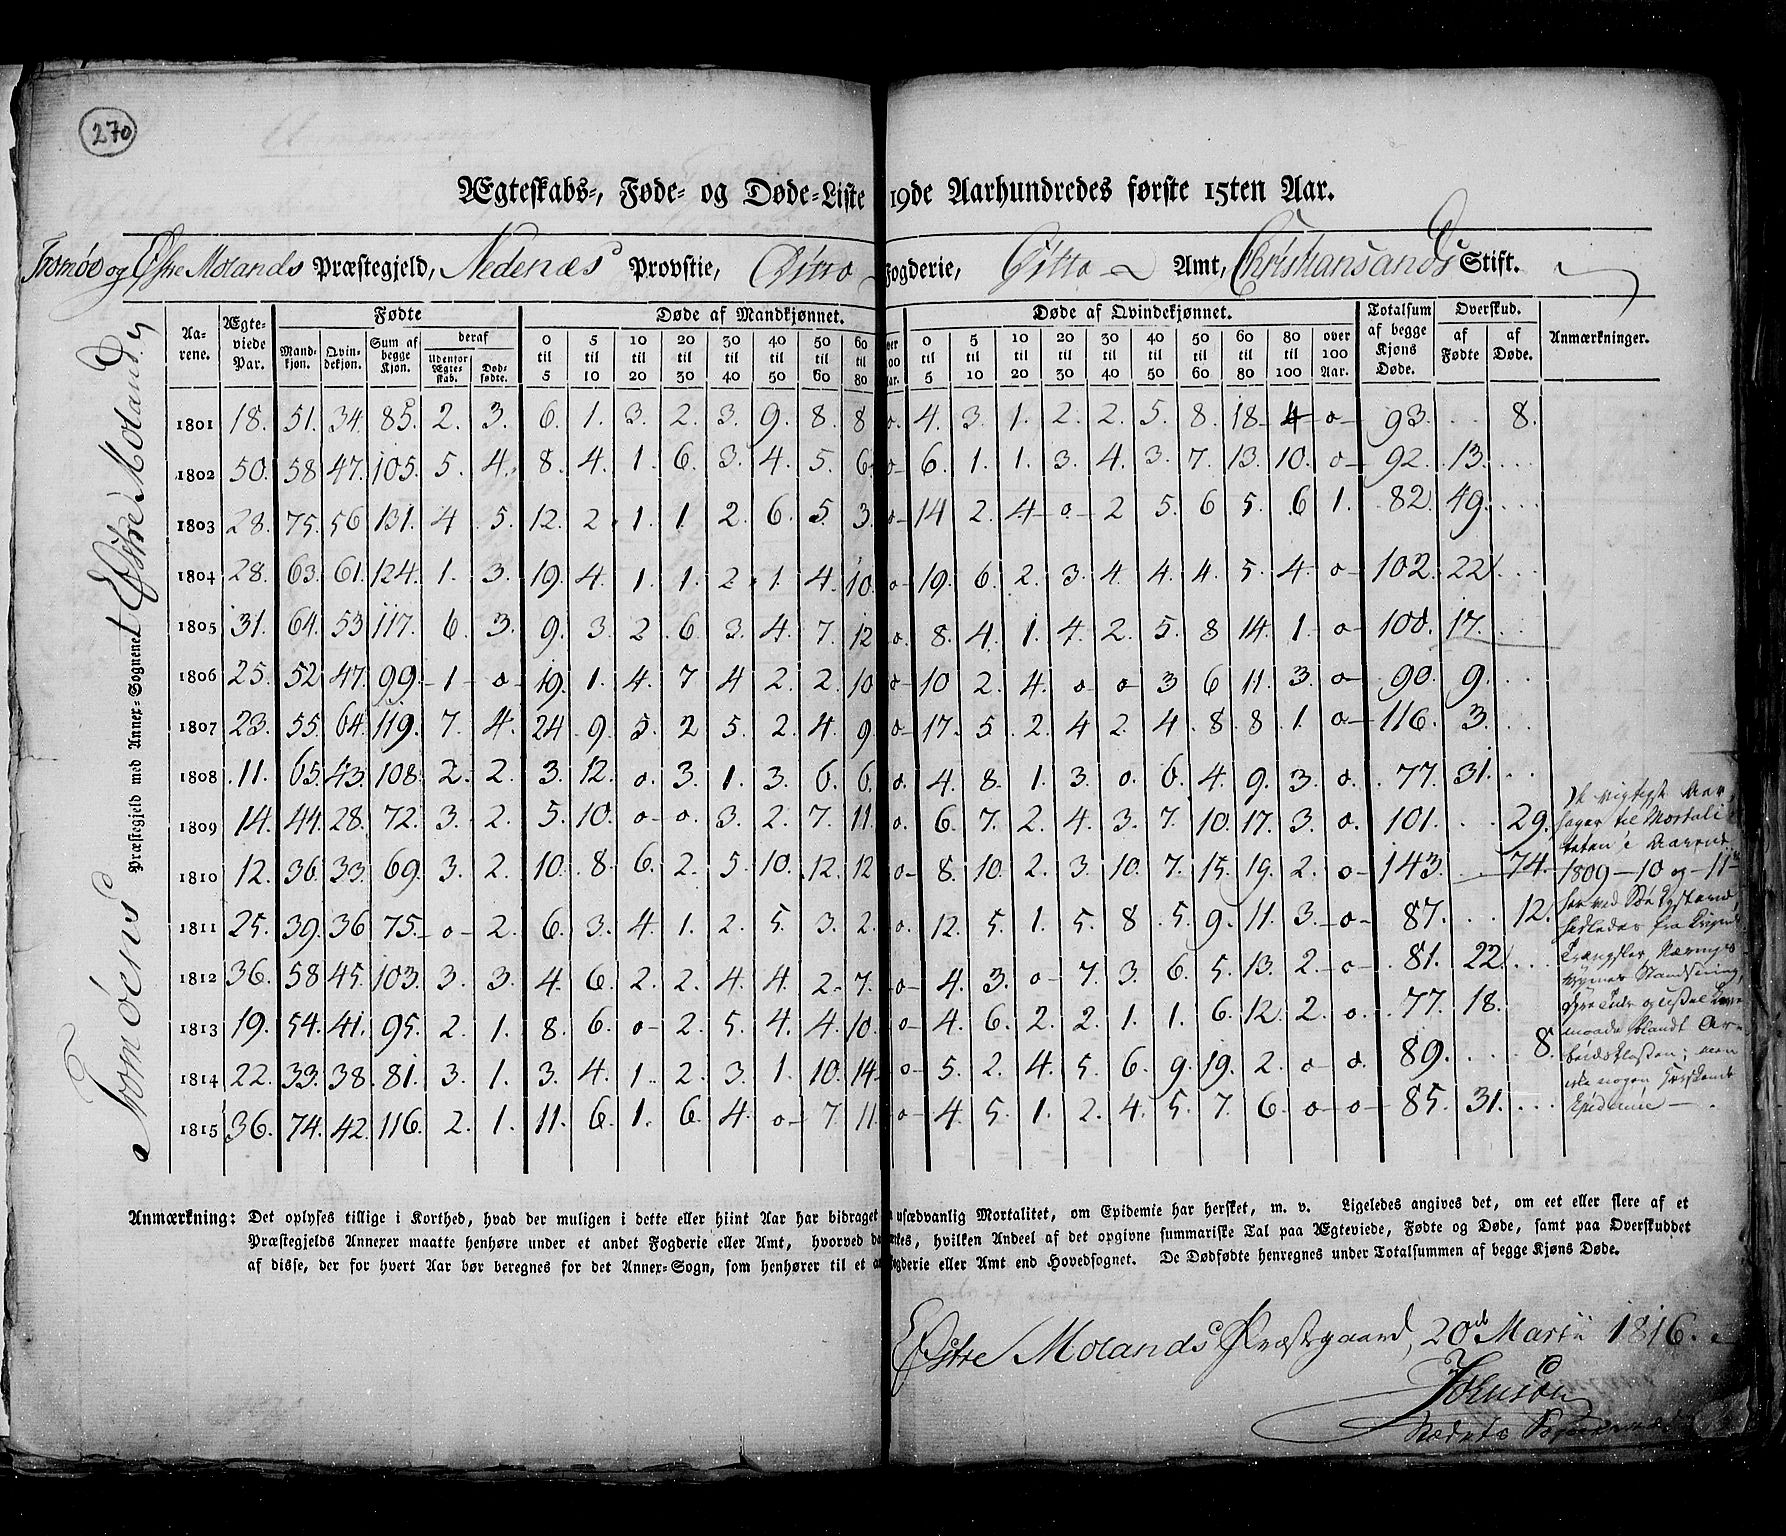 270
Ægteskabs-, Føde- og Døde-Liste 19de Aarhundredes første 15ten Aar.
Tromøe og Østre Molands Præstegjeld, Nedenæs Provstie, Ditto Fogderie, Ditto Amt, Christiansands Stift.
Tromøens Præstegjeld med Annex-Sognenet Østre Moland
Aa-rene. Ægte-viede Par. Fødte Døde af Mandkjønnet. Døde af Qvindekjønnet. Totalsum af begge Kjøns Døde. Overskud. Anmærkninger.
Mand-kjøn. Qvin-dekjøn. Sum af begge Kjøn. deraf Udenfor Ægte-skab. Død-fødte. af Fødte af Døde.
0 til 5 5 til 10 10 til 20 20 til 30 30 til 40 40 til 50 50 til 60 60 til 80 0 til 5 5 til 10 10 til 20 20 til 30 30 til 40 40 til 50 50 til 60 60 til 80 80 til 100 over 100 Aar.
1801 18. 51. 34. 85. 2. 3. 6. 1. 3. 2. 3. 9. 8. 8 o. 4. 3. 1. 2. 2. 5. 8. 18 4 o 93. . . 8.
1802 50. 58 47. 105. 5. 4. 8. 4. 1. 6. 3. 4. 5. 6 o 6. 1. 1. 3. 4. 3. 7. 13. 10. o 92. 13. . . .
1803 28. 75. 56 131. 4 5. 12. 2 1. 1. 2. 6. 5. 3. o 14 2. 4 o 2 5. 6 5. 6 1. 82. 49. . . .
1804 28. 63. 61. 124. 1. 3. 19. 4. 1. 1. 2. 1. 4. 10. o 19. 6. 2. 3. 4. 4. 4. 5. 4. o 102. 22. . . .
1805 31. 64. 53 117. 6. 3. 9. 3. 2. 6. 3. 4. 7. 12 o. 8. 4. 1. 4. 2. 5. 8 14. 1. o 100. 17. . . .
1806 25. 52 47. 99. 1 o 19. 1. 4. 7 4 2. 2. 10 o 10 2. 4. o o 3 6 11. 3. o 90. 9. . . .
1807 23. 55. 64. 119. 7. 4. 24 9. 5. 2 5. 2. 4. 9. o 17. 5. 2. 4 2. 4. 8. 8. 1. o 116. 3. . .
1808 11. 65. 43. 108. 2. 2. 3. 12. o. 3. 1. 3. 6. 6. o. 4. 8. 1. 3. o. 6. 4. 9. 3. o. 77. 31. . .
1809 14. 44. 28. 72. 3. 2. 5. 10. o o. 3. 2. 7. 11. o. 6. 7. 2. 4. 3. 7. 10. 17. 3. o. 101. . . 29.
1810 12. 36. 33. 69. 3. 2. 10. 8. 6. 2. 5. 10. 12. 12 o 8. 10. 2. 3. 10. 7. 15. 19. 2. o 143. . . 74.
1811 25. 39. 36 75. o 2. 6. 3. 4. 1. 2. 5. 3. 2. o. 12. 5. 1. 5. 8 5. 9. 11. 3. o 87. . . 12.
1812 36. 58 45. 103. 3. 3. 4. 6. 2. 2. 4. 4. 2. 7. o 4. 3. o 7. 3. 6. 5. 13. 2. o 81. 22. . . .
1813 19. 54. 41. 95. 2. 1. 8. 6. o 2. 5. 4. 4. 10. o 4. 6. 2. 2. 1. 1. 6. 12. 2. o. 77. 18.
1814 22. 33. 38. 81. 3. 1. 3. 4. 1. 2. 3. 1. 10. 14 o 5. 2. 4. 5. 6. 9. 19. 2. o o. 89. . . . 8.
1815 36. 74. 42. 116. 2. 1. 11. 6. 1. 6. 4. o 7. 11. o 4. 5. 1. 2. 4. 5. 7. 6. o o 85. 31. . . .
til Mortali
teten i Aarene
1809 – 10 og – 11
blandt Ar-
Epidemie
Anmærkning: Det oplyses tillige i Korthed, hvad der muligen i dette eller hiint Aar har bidraget usædvanlig Mortalitet, om Epidemie har hersket, m. v. Ligeledes angives det, om eet eller flere af et
Præstegjelds Annexer maatte henhøre under et andet Fogderie eller Amt, hvorved hvilken Andeel af det opgivne summariske Tal paa Ægteviede, Fødte og Døde, samt paa Overskuddet
af disse, der for hvert Aar bør beregnes for det Annex-Sogn, som henhører til et Fogderie eller Amt end Hovedsognet. De Dødfødte henregnes under Totalsummen af begge Kjøns Døde.
Østre Molands Præstegaard, 20de Martii 1816.